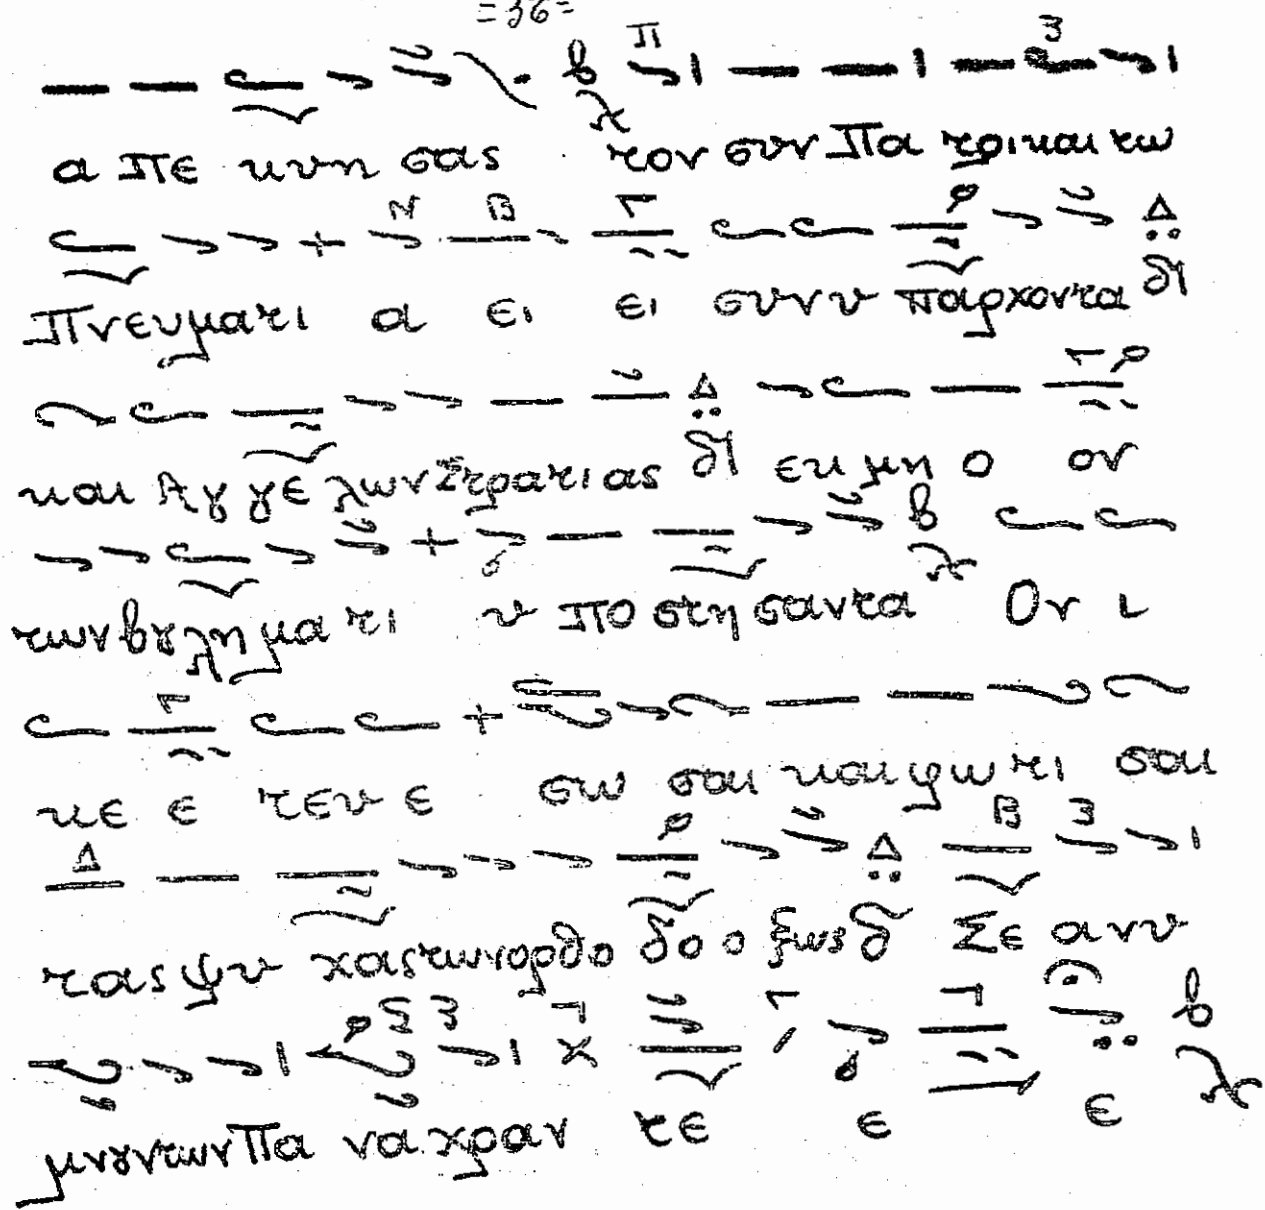 =36=
α πε κυη σας τον συν Πα τρι και τω
Πνευματι α ει ει συνυ παρχοντα δι
και Αγ γε λων Στρατιας δι εκ μη ο ον
των βȣλη μα τι υ πο στη σαντα Ον ι
κε ε τευ ε σω σαι και φω τι σαι
τας ψυ χας των ορθο δο ο ξως δ Σε αν υ
μνȣντων Πα να χραν τε ε ε